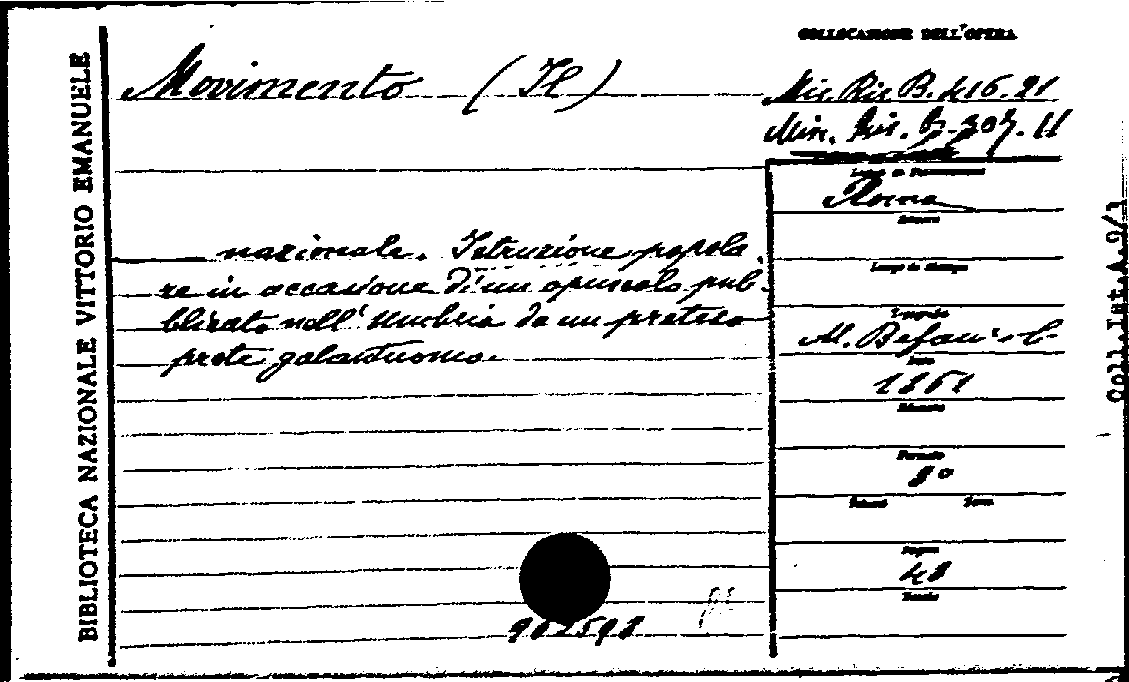 BIBLIOTECA NAZIONALE VITTORIO EMANUELE
COLLOCAZIONE DELL'OPERA
Movimento (Il)
Mis. Ris. B. 416. 21
Min. Ris. B. 307. 11
Roma
nazionale. Istruzione popola
re in occasione di un opuscolo pub-
blicato nell'Umbria da un preteso
prete galantuomo.
Luogo di Stampa
M. Befani e C.
Data
1861
Formato
8º
Pagine
48
902598
Coll.Ist.A.9/1